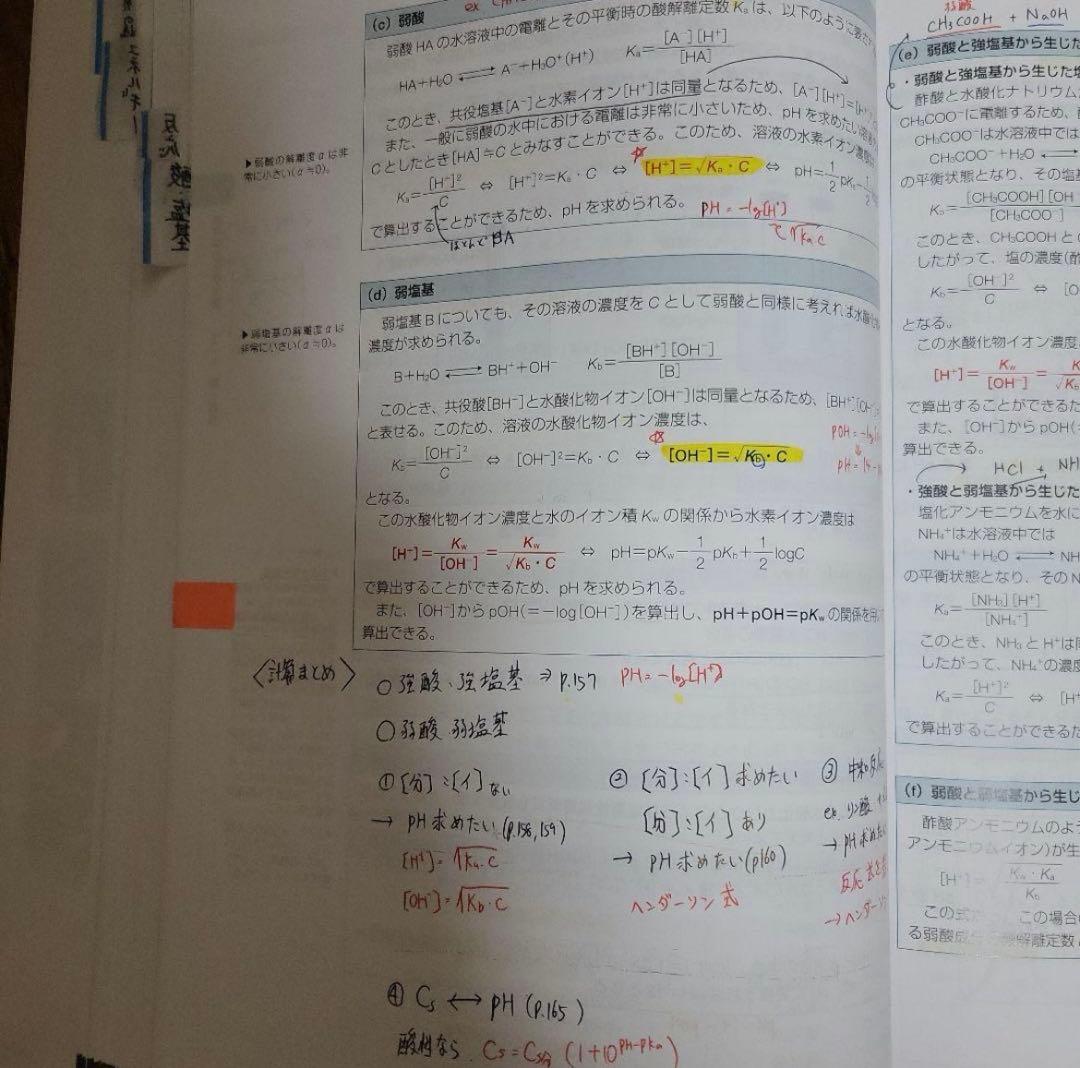 反応 酸・塩基
(c) 弱酸
弱酸 HA の水溶液中の電離とその平衡時の酸解離定数 Ka は、以下のように表さ
HA+H₂O ⇄ A⁻+H₃O⁺(H⁺)  Ka=[A⁻][H⁺]/[HA]
このとき、共役塩基[A⁻]と水素イオン[H⁺]は同量となるため、[A⁻][H⁺]=[H⁺
また、一般に弱酸の水中における電離は非常に小さいため、pH を求めたい溶液
C としたとき[HA]≒C とみなすことができる。このため、溶液の水素イオン濃度
▶弱酸の解離度αは非
常に小さい(α≒0)。
Ka=[H⁺]²/C ⇔ [H⁺]²=Ka・C ⇔ [H⁺]=√Ka・C ⇔ pH=1/2 pKa−1/2
で算出することができるため、pH を求められる。
pH=−log[H⁺]
で√Ka・C
ほとんどHA
(d) 弱塩基
弱塩基 B についても、その溶液の濃度を C として弱酸と同様に考えれば水酸化物
濃度が求められる。
▶弱塩基の解離度αは
非常に小さい(α≒0)。
B+H₂O ⇄ BH⁺+OH⁻  Kb=[BH⁺][OH⁻]/[B]
このとき、共役酸[BH⁻]と水酸化物イオン[OH⁻]は同量となるため、[BH⁺][OH⁻
と表せる。このため、溶液の水酸化物イオン濃度は、
pOH=−log
pH=14−
Kb=[OH⁻]²/C ⇔ [OH⁻]²=Kb・C ⇔ [OH⁻]=√Kb・C
となる。
この水酸化物イオン濃度と水のイオン積 Kw の関係から水素イオン濃度は
[H⁺]=Kw/[OH⁻]=Kw/√Kb・C ⇔ pH=pKw−1/2 pKb+1/2 logC
で算出することができるため、pH を求められる。
また、[OH⁻]から pOH(=−log[OH⁻])を算出し、pH+pOH=pKw の関係を用い
算出できる。
〈計算まとめ〉
○強酸、強塩基 ⇒ p.157 pH=−log[H⁺]
○弱酸、弱塩基
①[分]:[イ]ない
→ pH求めたい(p.158,159)
[H⁺]=√Ka・C
[OH⁻]=√Kb・C
②[分]:[イ]求めたい
[分]:[イ]あり
→ pH求めたい(p160)
ヘンダーソン式
③ 中和反
ex リン酸
→pH求めた
反応式
→ヘンダーソ
④ Cs ⟷ pH (p.165)
酸性なら Cs=Cs分(1+10^pH−pKa)
CH₃COOH + NaOH
(e) 弱酸と強塩基から生じた
・弱酸と強塩基から生じた塩
酢酸と水酸化ナトリウム
CH₃COO⁻に電離するため、
CH₃COO⁻は水溶液中では
CH₃COO⁻+H₂O ⇄
の平衡状態となり、その塩基
Kb=[CH₃COOH][OH/[CH₃COO⁻]
このとき、CH₃COOH と
したがって、塩の濃度(酢
Kb=[OH⁻]²/C ⇔ [O
となる。
この水酸化物イオン濃度
[H⁺]=Kw/[OH⁻]=K/√Kb
で算出することができるため
また、[OH⁻]から pOH(
算出できる。
HCl + NH
・強酸と弱塩基から生じた
塩化アンモニウムを水に
NH₄⁺は水溶液中では
NH₄⁺+H₂O ⇄ NH
の平衡状態となり、その N
Ka=[NH₃][H⁺]/[NH₄⁺]
このとき、NH₃ と H⁺は同
したがって、NH₄⁺の濃度
Ka=[H⁺]²/C ⇔ [H⁺
で算出することができるた
(f) 弱酸と弱塩基から生じ
酢酸アンモニウムのよ
アンモニウムイオン)が生
[H⁺]=√Kw・Ka/Kb
この式 この場合
る弱酸成 酸解離定数